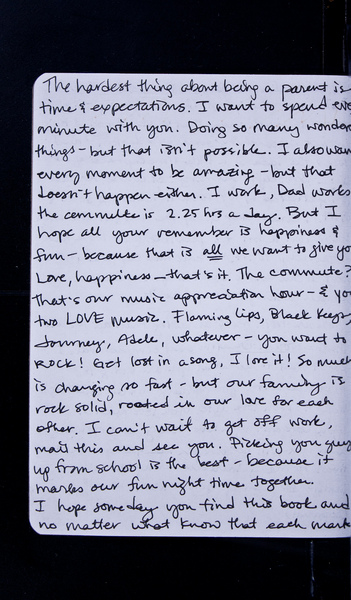 The hardest thing about being a parent is
time & expectations. I want to spend eve
minute with you. Doing so many wonder
things - but that isn't possible. I also wan
every moment to be amazing - but that
doesn't happen either. I work, Dad works
the commute is 2.25 hrs a day. But I
hope all you remember is happiness &
fun - because that is all we want to give yo
Love, happiness - that's it. The commute?
That's our music appreciation hour - & yo
two LOVE music. Flaming Lips, Black Keys,
Journey, Adele, whatever - you want to
ROCK! Get lost in a song, I love it! So much
is changing so fast - but our family is
rock solid, rooted in our love for each
other. I can't wait to get off work,
mail this and see you. Picking you guys
up from school is the best - because it
marks our fun night time together.
I hope someday you find this book and
no matter what know that each mark